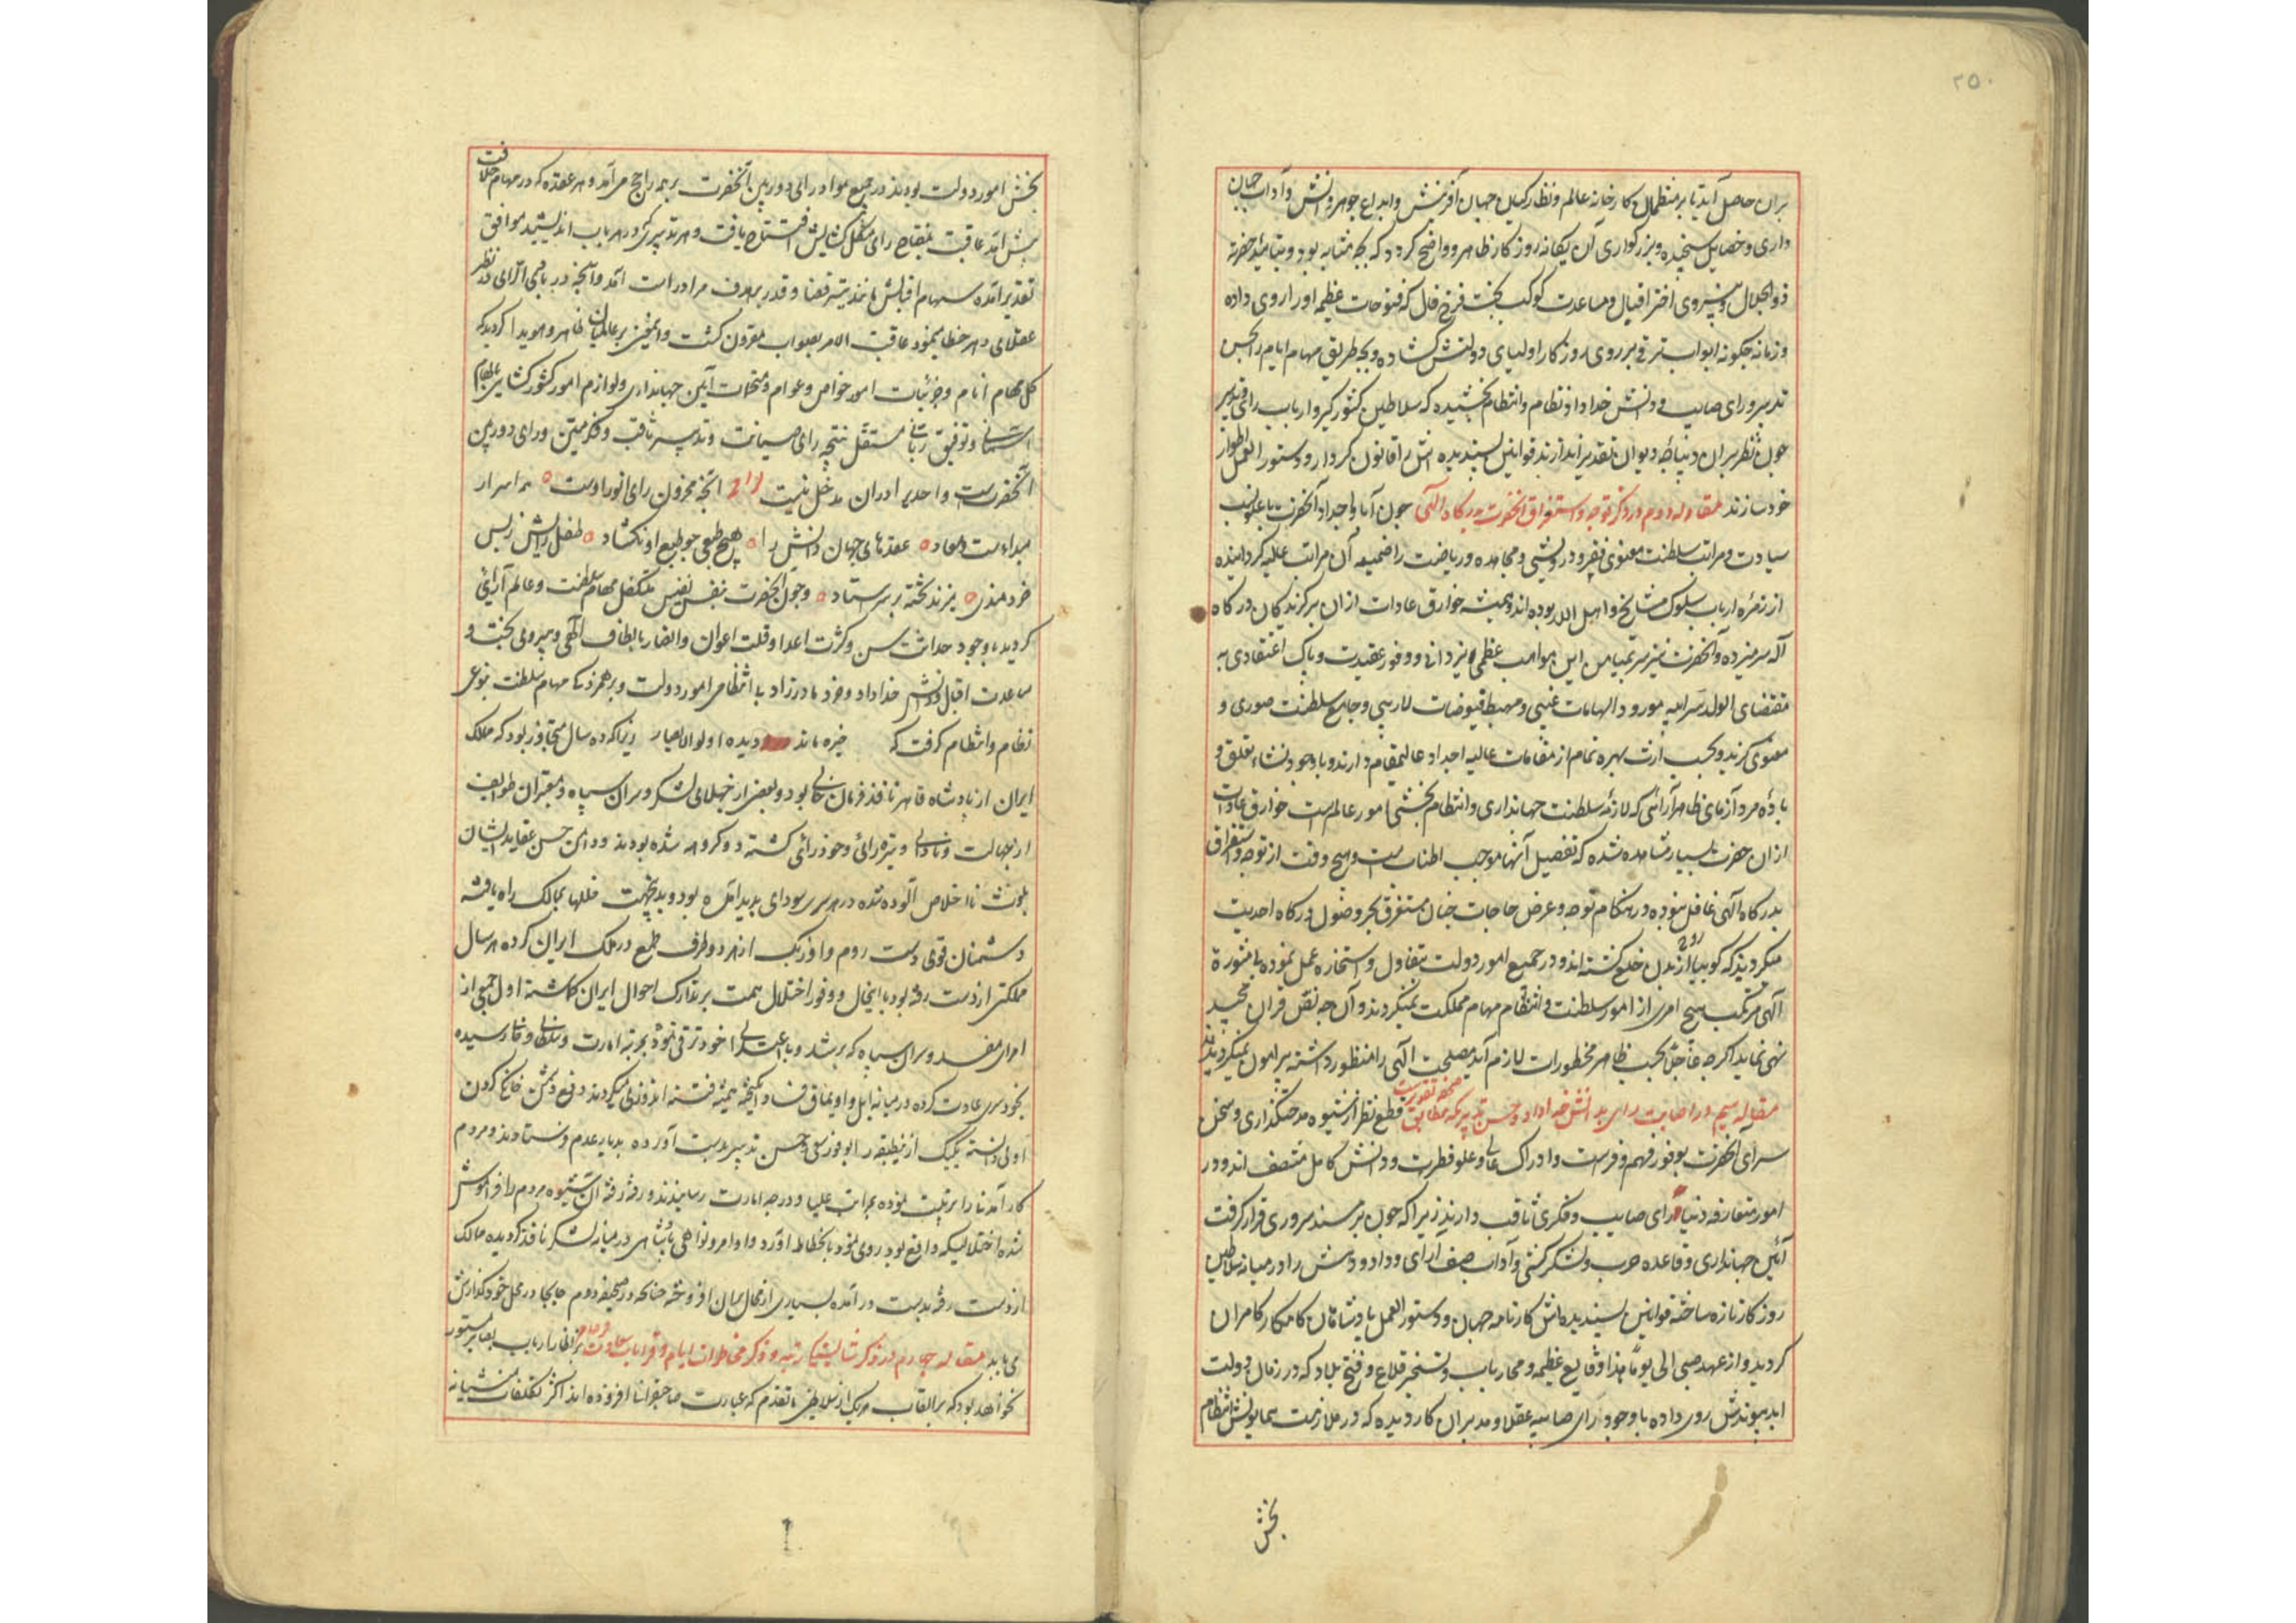 ۲۵۰
بران حاصل آید تا بر منتظمان کارخانه عالم و نظارکیان جهان آفرینش و ابداع جوهر دانش و آداب جهان
داری و خصایل سنجیده و بزرکواری آن یکانه روزکار ظاهر و واضح کردد که بچه مثابه بود و بتایید حضرت
ذوالجلال و نیروی اختر اقبال و مساعدت کوکب بخت فرخ فال که فتوحات عظیمه او را روی داده
و زمانه چکونه ابواب ترقی بر روی روزکار اولیای دولتش کشاده و بچه طریق مهام ایام را بحسن
تدبیر و رای صایب و دانش خداداد نظام و انتظام بخشیده که سلاطین کشورکیر و ارباب رای و تدبیر
چون نظر بران دیباچه دیوان تقدیر اندازند قوانین پسندیده اش را قانون کردار و دستور العمل اطوار
خود سازند مقاله دوم در ذکر توجه و استغراق آنحضرت بدرکاه الهی چون آبا و اجداد آنحضرت با علو نسب
سیادت و مراتب سلطنت معنوی فقر و درویشی و مجاهده و ریاضت را ضمیمه آن مراتب علیه کردانیده
از زمره ارباب سلوک مشایخ و اهل الله بوده اند و همیشه خوارق عادات ازان برکزیدکان درکاه
اله سر میزده و آنحضرت نیز بمیامن این مواهب عظمی یزدانی و وفور عقیدت و پاک اعتقادی به
مقتضای الولد سر ابیه مورد الهامات غیبی و مهبط فیوضات لاریبی و جامع سلطنت صوری و
معنوی کزیده بحسب ارث بهره تمام از مقامات عالیه اجداد عالیمقام دارند و باوجود نشاء تعلق و
باده مردآزمای ظاهر آرائی که لازمه سلطنت جهانداری و انتظام بخشی امور عالمست خوارق عادات
ازان حضرت بسیار مشاهده شده که تفصیل آنها موجب اطنابست و هیچ وقت از توجه و استغراق
بدرکاه الهی غافل نبوده در هنکام توجه و عرض حاجات چنان مستغرق بحر وصول درکاه احدیت
میکردیدند که کوییا از بدن خلع کشته اند و در جمیع امور دولت بتفاول و استخاره عمل نموده بی مشورة
الهی مرتکب هیچ امری از امور سلطنت و انتظام مهام مملکت نمیکردند و آن چه نقل قران مجید
نهی نماید اکرچه عاجلا بحسب ظاهر محظورات لازم آید مصلحت الهی را منظور داشته پیرامون نمیکردیدند
مقاله سیم در اصابت رای بدانش خداداد و حسن تدبیر که مطابق محض تقدیرست قطع نظر از شیوه مدحتکذاری و سخن
سرای آنحضرت بوفور فهم و فراست و ادراک عالی و علو فطرت و دانش کامل متصف اند و در
امور متعارفه دنیا رای صایب و فکری ثاقب دارند زیرا که چون بر مسند سروری قرار کرفت
آئین جهانداری و قاعده حرب و لشکرکشی و آداب صف آرای و داد و دهش را در میانه سلاطین
روزکار تازه ساخته قوانین پسندیده اش کارنامه جهان و دستور العمل پادشاهان کامکار کامران
کردید و از عهد صبی الی یومنا هذا وقایع عظیمه و محاربات و تسخیر قلاع و فتح بلاد که در زمان دولت
ابد پیوندش روی داده باوجود رای صایبه عقلا و مدبران کاردیده که در ملازمت همایونش انتظام
بخش
بخش امور دولت بودند در جمیع مواد رای دوربین آنحضرت بر همه راجح می آمد و هر عقده که در مهام خلافت
پیش آمد عاقبت بمفتاح رای مشکل کشایش افتتاح یافت و هر تدبیری که در هر باب اندیشید موافق
تقدیر آمده سهام اقبالش مانند تیر قضا و قدر بر هدف مراد راست آمد و آنچه در بادی الرای در نظر
عقلای دهر خطا مینمود عاقبت الامر بصواب مقرون کشت و این معنی بر عالمیان ظاهر و هویدا کردید که
کل مهام انام و جزئیات امور خواص و عوام و منتخبات آئین جهانداری و لوازم امور کشورکشایی بالهام
آسمانی و توفیق ربانی مستقل نتیجه رای صیانت و تدبیر ثاقب و فکر متین و رای دوربین
آنحضرتست و احدی را دران مدخل نیست انچه مخزون رای انور اوست همه اسرار
مبداءست و معاد عقدهای جهان دانش را هیچ طبعی چو طبع او نکشاد طفل رایش ز بس
خردمندی میزند تخته بر سر استاد و چون آنحضرت بنفس نفیس متکفل مهام سلطنت و عالم آرائی
کردید باوجود حداثت سن و کثرت اعدا و قلت اعوان و انصار بالطاف الهی و نیروی بخت و
مساعدت اقبال و دانش خداداد و خرد مادرزاد با انتظام امور دولت و برهمزدکی مهام سلطنت بنوعی
نظام و انتظام کرفت که خیره ماند دیده اولوالابصار زیرا که ده سال متجاوز بود که ملک
ایران از پادشاه قاهر نافذ فرمان خالی بود و بعضی از جهلای لشکر و سران سپاه و معتبران طوایف
از جهالت و نادانی و تیره رائی و خودرائی کشته دو کروه شده بودند و دامن حسن عقاید ایشان
بلوث نااخلاص آلوده شده در هر سری سودای پدید آمده بود و بدینجهت خللها بممالک راه یافته
دشمنان قوی دست روم و اوزبک از هر دو طرف طمع در ملک ایران کرده هر سال
مملکتی از دست رفته بود با اینحال و وفور اختلال همت بر تدارک احوال ایران کماشته اول جمعی از
امرای مفسد و سران سپاه که برشد و بی اعتدالی خود ترقی نموده بمرتبه امارت و سلطانی و خانی رسیده
بخودسری عادت کرده در میانه ایل و اویماق فساد انکیخته همیشه فتنه اندوزی میکردند دفع دشمن خانکی کردن
اولی دانسته یکیک ازین طبقه را بوفور سعی و حسن تدبیر بدست آورده بدیار عدم فرستادند و مردم
کارآمدنی را تربیت نموده بمراتب علیا و درجه امارت رسانیدند و رفته رفته آن شیوه مردم را فراموش
شده اختلالیکه واقع بود روی بانحطاط آورد و اوامر و نواهی پادشاهی در میانه لشکر نافذ کردیده ممالک
از دست رفته بدست درآمده بسیاری از محال بران افزوده چنانچه در صحیفه دوم جابجا در محل خود کذارش
می یابد مقاله چهارم در ذکر شایستکی رتبه و ذکر مخاطرات ایام و قرانات سعادت فرجام بر انظار ارباب بصایر مستور
نخواهد بود که بر القاب هریک از سلاطین ما تقدم که عبارت صاحبقرانا افزوده اند اکثر تکلفات منشیانه